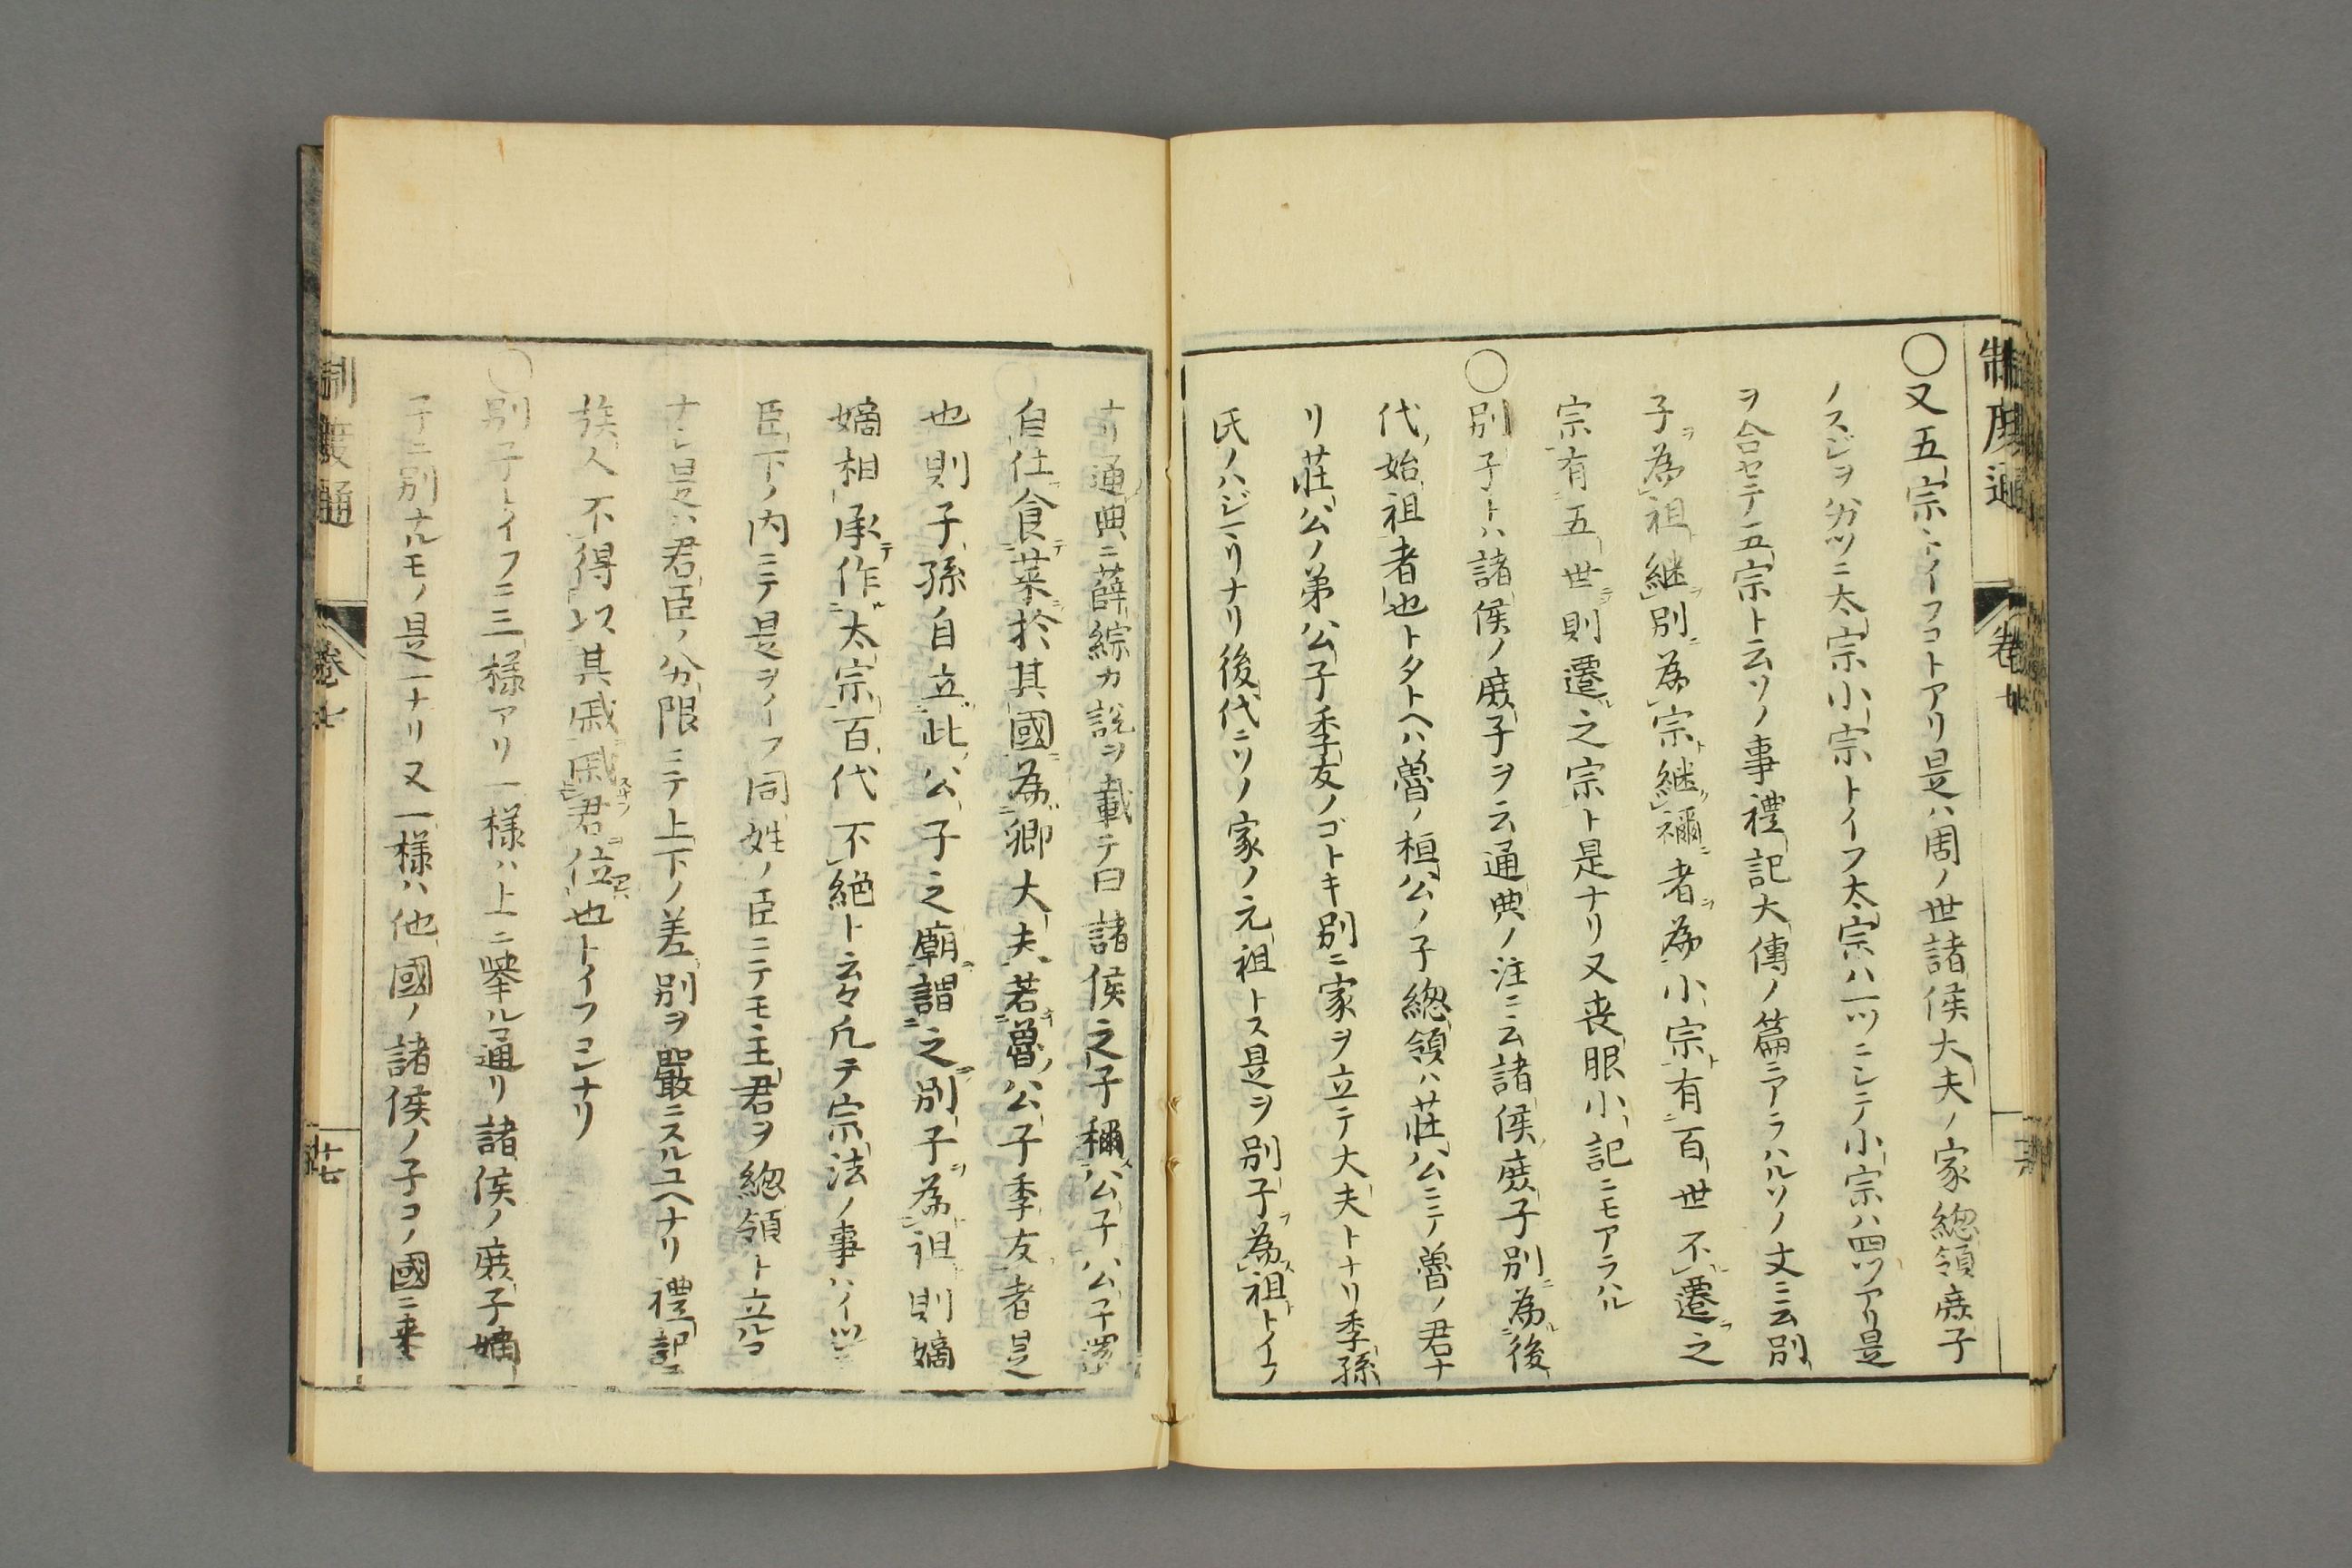 制度通
卷七
〇又五宗トイフコトアリ是ハ周ノ世諸侯大夫ノ家總領庶子
ノスジヲ分ツニ太宗小宗トイフ太宗ハ一ツニシテ小宗ハ四ツアリ是
ヲ合セテ五宗ト云ソノ事禮記大傳ノ篇ニアラハルソノ文ニ云別
子為祖継別為宗継禰者為小宗有百世不遷之
宗有五世則遷之宗ト是ナリ又喪服小記ニモアラハル
〇別子トハ諸侯ノ庶子ヲ云通典ノ注ニ云諸侯庶子別為後
代始祖者也トタトヘハ魯ノ桓公ノ子總領ハ莊公ニテ魯ノ君ナ
リ莊公ノ弟公子季友ノゴトキ別ニ家ヲ立テ大夫トナリ季孫
氏ノハジマリナリ後代ニソノ家ノ元祖トス是ヲ別子為祖トイフ
ナリ通典ニ薛綜カ説ヲ載テ曰諸侯之子稱公子公子
自仕食菜於其國為卿大夫若魯公子季友者是
也則子孫自立此公子之廟謂之別子為祖則嫡
嫡相承作太宗百代不絶ト云々凡テ宗法ノ事ハイツレ
臣下ノ内ニテ是ヲイフ同姓ノ臣ニテモ主君ヲ總領ト立ルコ
ナシ是ハ君臣ノ分限ニテ上下ノ差別ヲ嚴ニスルユヘナリ禮記ニ
族人不得以其戚戚君位也トイフコレナリ
〇別子トイフニ三様アリ一様ハ上ニ擧ル通リ諸侯ノ庶子嫡
子ニ別ナルモノ是一ナリ又一様ハ他國ノ諸侯ノ子コノ國ニ来
制度通
卷七
廿七